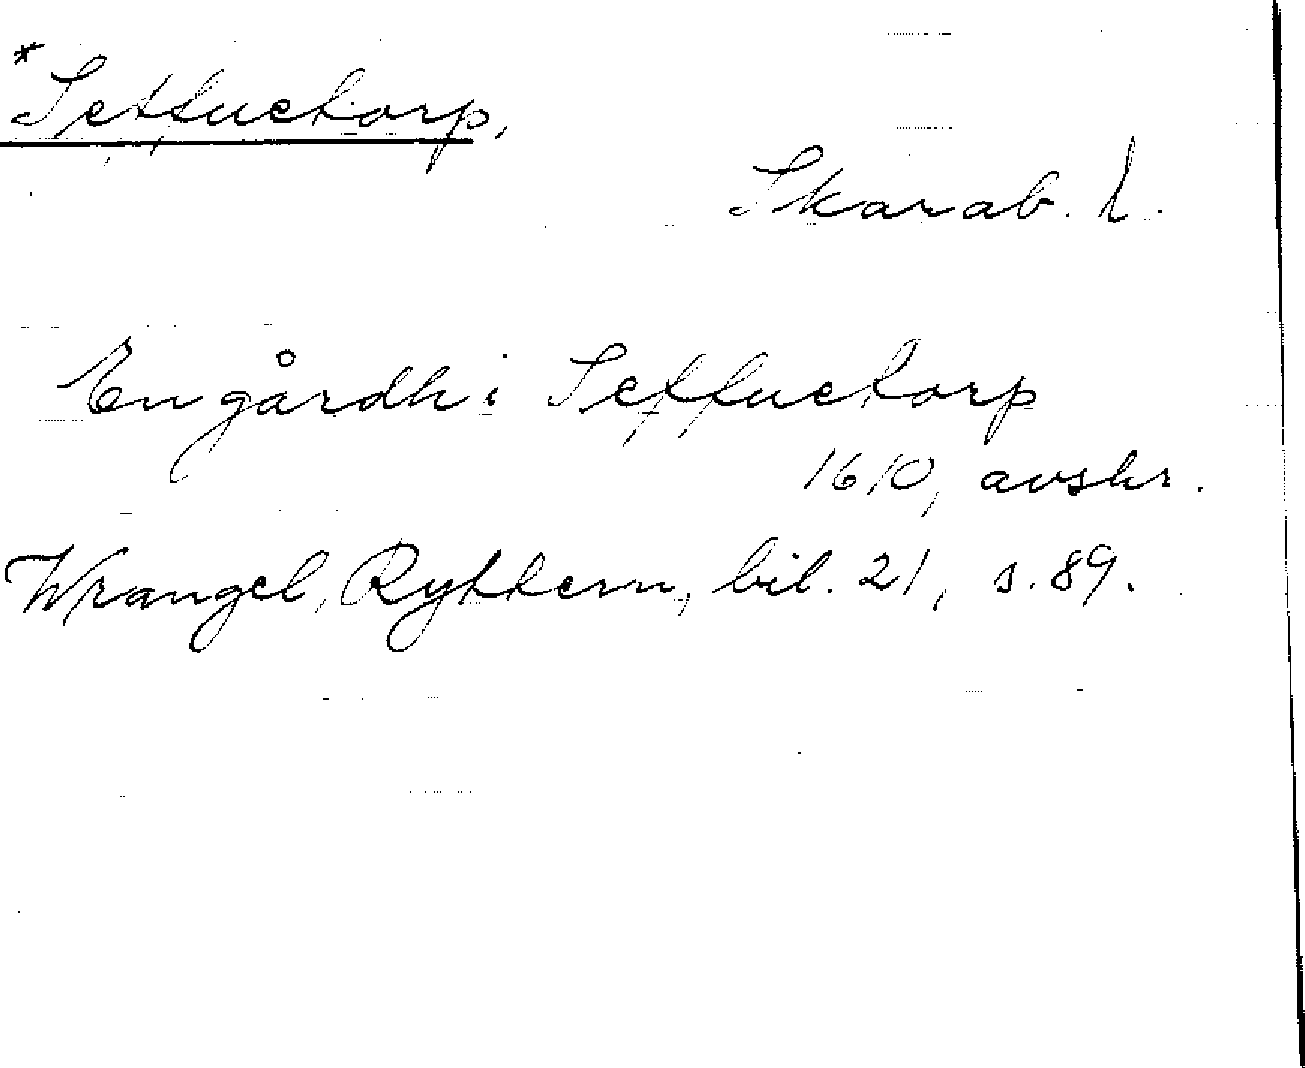 *Seffuetorp,
Skarab. l.
En gårdh i Seffuetorp
1610, avskr.
Wrangel, Ryttern, bil. 21, s. 89.